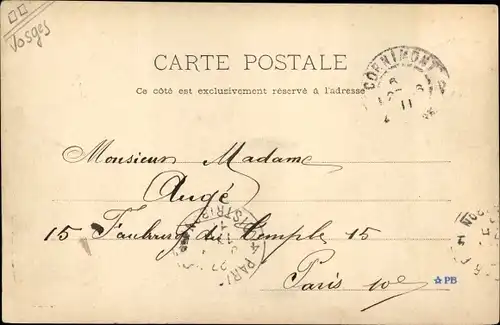 Vosges
CARTE POSTALE
Ce côté est exclusivement réservé à l'adresse
CORNIMONT
11
Monsieur Madame
Augé
15 Faubourg du Temple 15
Paris 10e
PARI
DISTRIB
PB